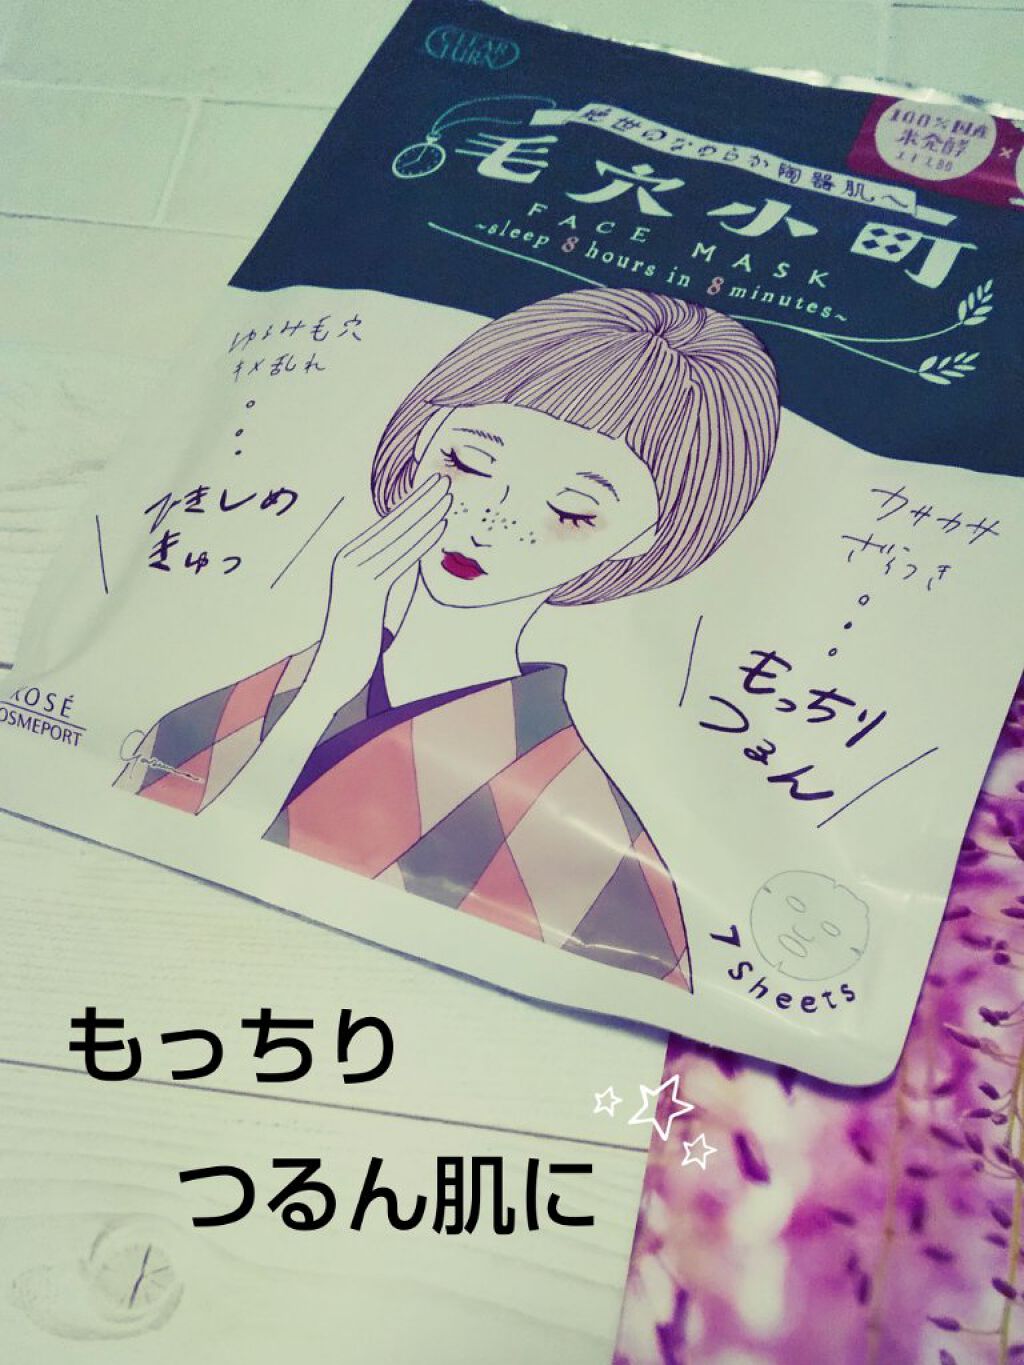 CLEAR
TURN
100%国産
米発酵
エキス配合
×
絶世のなめらか陶器肌へ
毛穴小町
FACE MASK
~sleep 8 hours in 8 minutes~
ゆるみ毛穴
キメ乱れ
ひきしめ
きゅっ
カサカサ
ざらつき
もっちり
つるん
KOSÉ
COSMEPORT
7 Sheets
もっちり
つるん肌に